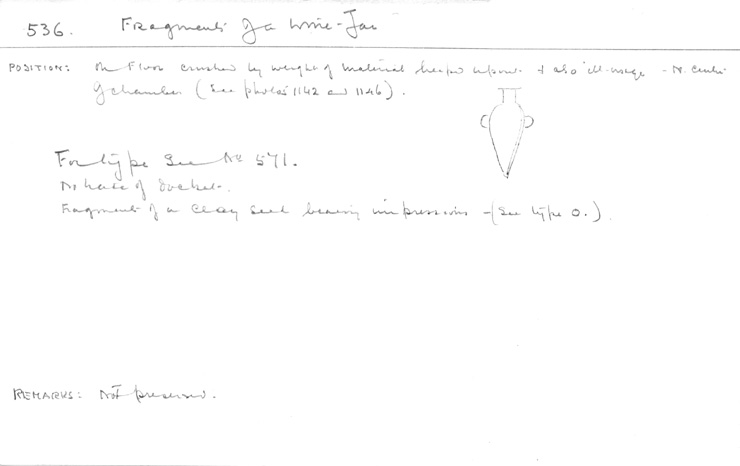 536. Fragments of a Wine-Jar
POSITION: On Floor crushed by weight of material heaped upon & also ill-usage - N. Centre
of chamber (See photos 1142 and 1146).
For type See No 571.
No trace of docket.
Fragment of a clay seal bearing impressions - (See type O.)
REMARKS: Not preserved.